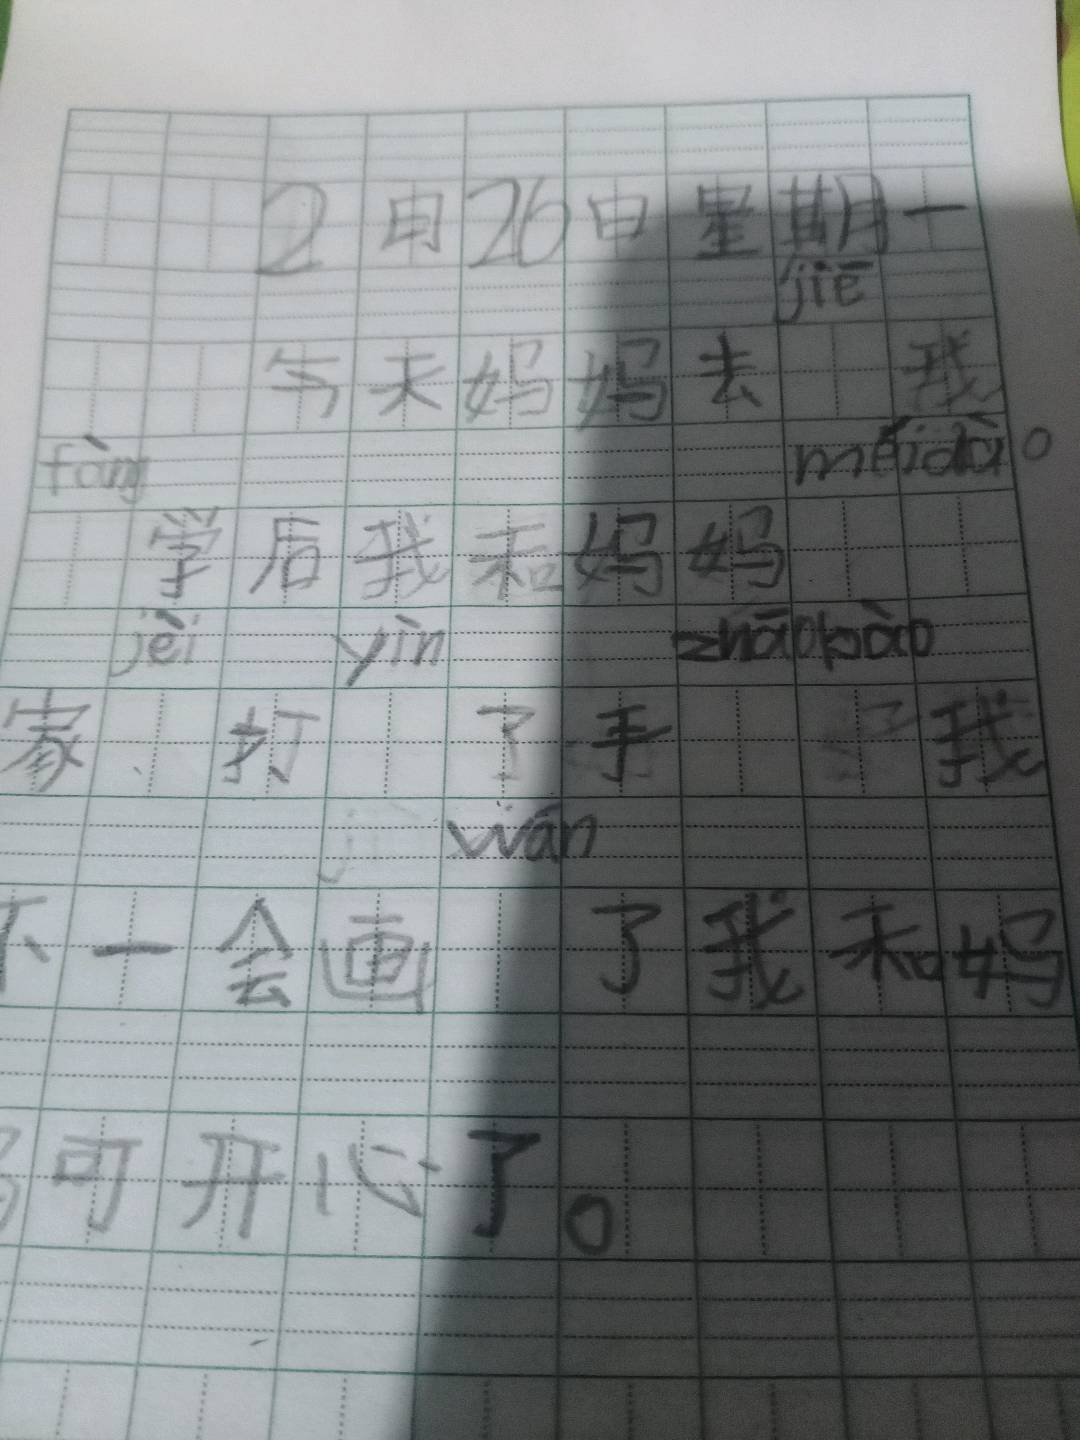 2月26日星期一
jiē
今天妈妈去 我
fàng méidào
学后我和妈妈
jèi yìn zhāobào
家 打 了手 我
wán
不一会画 了我和妈
妈可开心了。